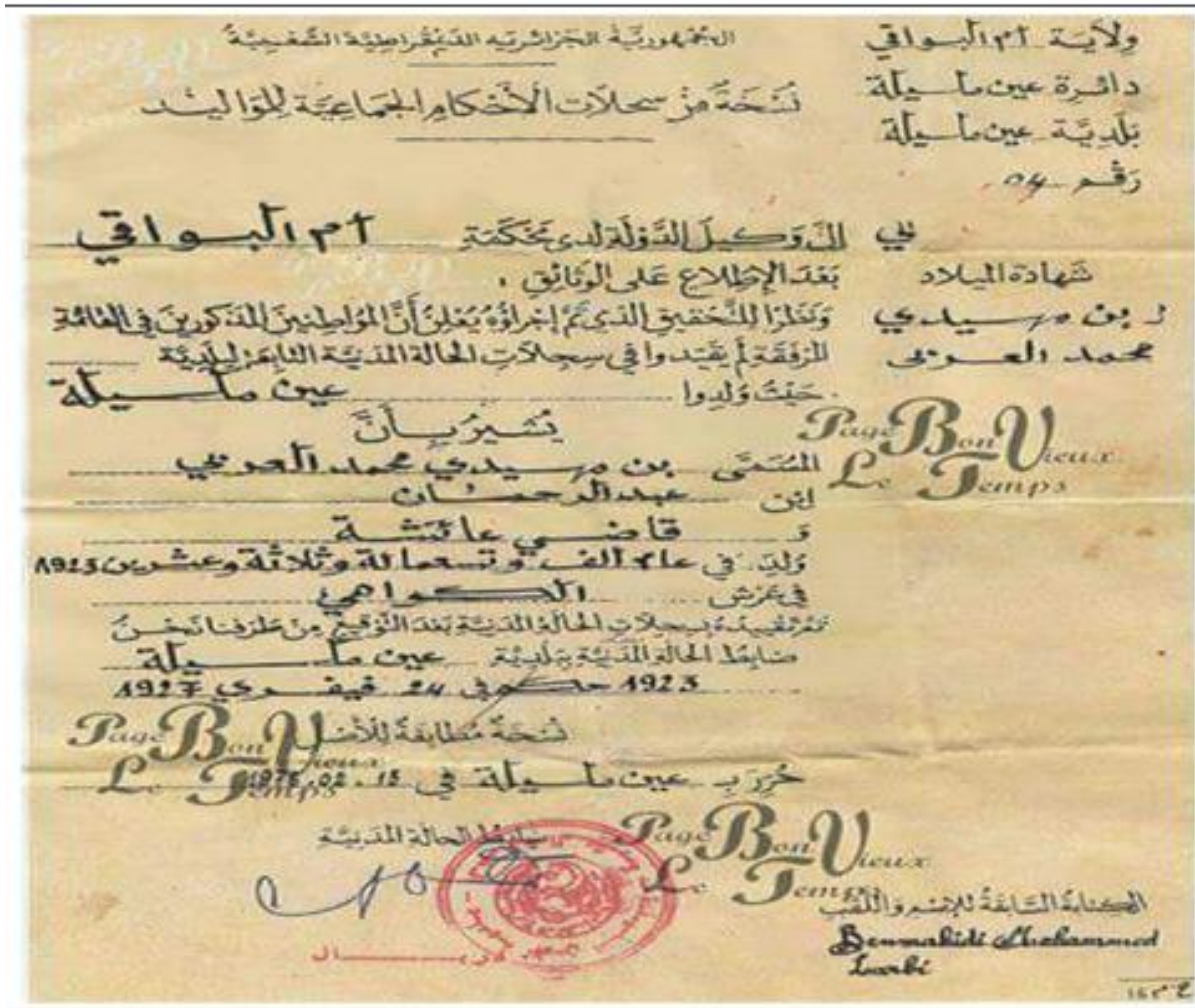 الجمهورية الجزائرية الديمقراطية الشعبية
نسخة من سجلات الأحكام الجماعية للمواليد
ولاية ام البواقي
دائرة عين مليلة
بلدية عين مليلة
رقم 04
شهادة الميلاد
لـ بن مهيدي
محمد العربي
وكيل الدولة لدى محكمة ام البواقي
بعد الإطلاع على الوثائق ،
ونظرا للتحقيق الذي تم إجراؤه يعلن أن المواطنين المذكورين في القائمة
المرفقة لم يقيدوا في سجلات الحالة المدنية التابعة لبلدية
حيث ولدوا عين مليلة
يشير بأن
المسمى بن مهيدي محمد العربي
ابن عبد الرحمان
و قاضي عائشة
ولد في عام الف و تسعمائة وثلاثة وعشرين 1923
في عرش الكواهي
تم تقييده بسجلات الحالة المدنية بعد التوقيع من طرفنا نحن
ضابط الحالة المدنية ببلدية عين مليلة
1923 حكم في 24 فيفري 1927
نسخة مطابقة للأصل
حرر ب عين مليلة في
ضابط الحالة المدنية
الكتابة السابقة للإسم واللقب
Benmahidi Mohammed
Larbi
Page Bon Vieux
Le Temps
Page Bon Vieux
Le Temps
Page Bon Vieux
Le Temps